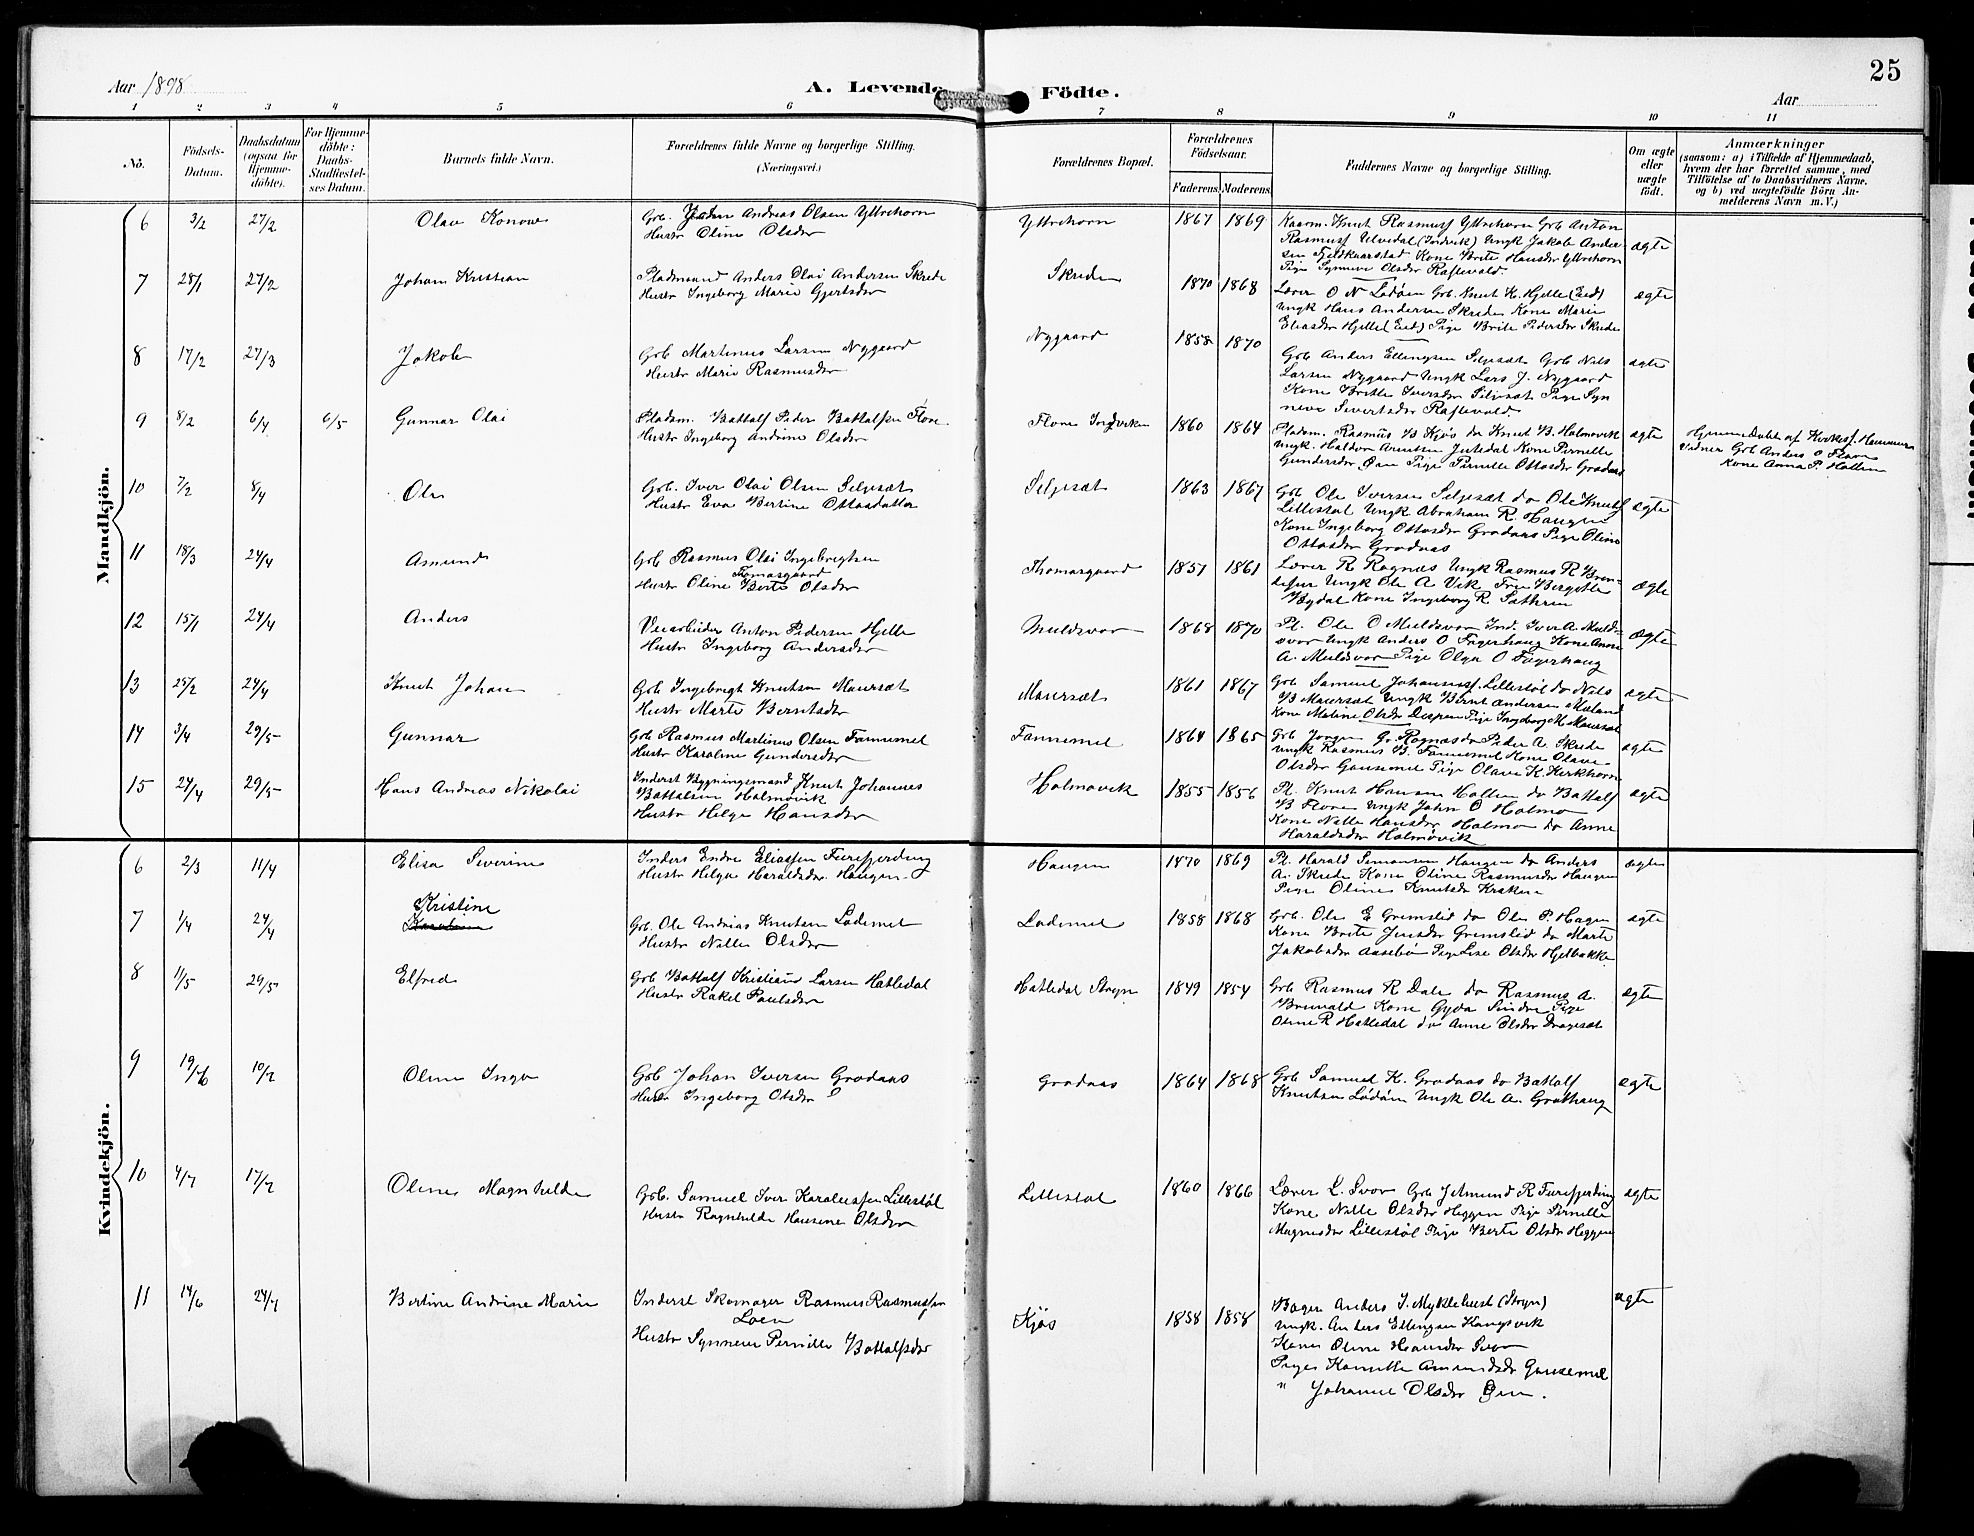 25
Aar 1898
A. Levende Födte.
Aar
1 2 3 4 5 6 7 8 9 10 11
No.
Födsels-Datum.
Daabsdatum (ogsaa for Hjemme-döbte).
For Hjemme-döbte: Daabs-Stadfæstelses Datum.
Barnets fulde Navn.
Forældrenes fulde Navne og borgerlige Stilling. (Næringsvei.)
Forældrenes Bopæl.
Forældrenes Födselsaar.
Faderens. Moderens.
Faddernes Navne og borgerlige Stilling.
Om ægte eller uægte födt.
Anmærkninger
(saasom: a) i Tilfælde af Hjemmedaab,
hvem der har forrettet samme, med
Tilföielse af to Daabsvidners Navne,
og b) ved uægtefödte Börn An-
melderens Navn m. V.)
Mandkjön.
6 3/2 27/2 Olav Konow
Grb. Andreas Olsen Yttrehorn
Hustr Oline Olsdtr
Yttrehorn 1867 1869
Kaarm. Knut Rasmusf Yttrehorn Grb Anton
Rasmusf Ulvedal (Indvik) Ungk Jakob Ander
sen Fjeldkaarstad Kone Brite Hansdtr Yttrehorn
Pige Synneve Olsdtr Raftevold
ægte
7 28/1 27/2 Johan Kristian
Pladsmand Anders Olai Andersen Skrede
Hustr Ingeborg Marie Gjertsdtr
Skreden 1870 1868
Lærer O N Lødøen Grb. Knut K. Hjelle (Eid)
Ungk Hans Andersen Skreden Kone Marie
Eliasdtr Hjelle (Eid) Pige Brite Pedersdtr Skrede
ægte
8 17/2 27/3 Jakob
Grb Martinus Larsen Nygaard
Hustr Marie Rasmusdtr
Nygaard 1858 1870
Grb Anders Ellingsen Seljesæt Grb Nils
Larsen Nygaard Ungk Lars J. Nygaard
Kone Britte Iversdtr Seljesæt Pige Syn
neve Sivertsdtr Raftevold
ægte
9 8/2 6/4 6/5 Gunnar Olai
Pladsm. Battolf Peder Battolfsen Flore
Hustr Ingeborg Andrine Olsdtr
Flore Indviken 1860 1864
Pladsm. Rasmus B Kjøs do Knut B. Holmøvik
Ungk. Haldor Arnesen Julsdal Kone Pernille
Gundersdtr Øen Pige Pernille Ottosdtr Grodaas
ægte
Hjemmedøbt af Kirkes. Hammer
Vidner Grb Anders O Flore
Kone Anna P. Holten
10 7/2 8/4 Ole
Grb. Iver Olai Olsen Seljesæt
Hustr Eva Bertine Ottosdatter
Seljesæt 1863 1867
Grb Ole Iversen Seljesæt do Ole Knutsf
Lillestøl Ungk Abraham R. Haugen
Kone Ingeborg Ottosdtr Grodaas Pige Oline
Ottosdtr Grodaas
ægte
11 18/3 24/4 Asmund
Grb Rasmus Olai Ingebrigtsen
Tomasgaard
Hustr Oline Berte Olsdtr
Thomasgaard 1857 1861
Lærer R Ragnæs Ungk Rasmus R
Ungk Ole A Vik Fru Bergitte
Kone Ingeborg R. Sæthren
ægte
12 15/1 24/4 Anders
Veiarbeider Anton Pedersen Hjelle
Hustr Ingeborg Andersdtr
Muldsvor 1868 1870
Pl. Ole O Muldsvor Ind. Iver A. Muld-
svor Ungk Anders O Fagerhaug Kone Anne
A. Muldsvor Pige Olga O Fagerhaug
ægte
13 25/2 24/4 Knut Johan
Grb Ingebrigt Knutsen Maursæt
Hustr Marte Berntsdtr
Maursæt 1861 1867
Grb Samuel Johannesf. Lillestøl do Nils
B Maursæt Ungk Bernt Andersen Møland
Kone Maline Olsdtr Pige Ingeborg M Maursæt
ægte
14 3/4 29/5 Gunnar
Grb Rasmus Martinus Olsen Fannemel
Hustr Karoline Gundersdtr
Fannemel 1864 1865
Grb Jørgen G. Ragnæs do Peder A. Skrede
Ungk Rasmus B. Fannemel Kone Olave
Olsdtr Gausemel Pige Olave K. Kirkhorn
ægte
15 24/4 29/5 Hans Andreas Nikolai
Inderst Bygningsmand Knut Johannes
Battalsen Holmøvik
Hustr Helge Hansdtr
Holmøvik 1855 1856
Pl. Knut Hansen Holten do Battolf
B Flore Ungk John O Holmø
Kone Nille Hansdtr Holmø do Anne
Haraldsdtr Holmøvik
ægte
Kvindekjön.
6 2/3 11/4 Elisa Severine
Inders Endre Eliassen Furefjerding
Hustr Helga Haraldsdtr. Haugen
Haugen 1870 1869
Pl. Harald Simonsen Haugen do Anders
A. Skrede Kone Oline Rasmusdtr Haugen
Pige Oline Knutsdtr Kraken
ægte
7 1/4 24/4 Kristine
Grb. Ole Andreas Knutsen Lødemel
Hustr Nille Olsdtr
Lødemel 1858 1868
Grb. Ole E Grimslid do Ole P. Hagen
Kone Brite Jensdtr Grimslid do Marte
Jakobsdtr Aasebø Pige Lise Olsdtr Hjelbakke
ægte
8 11/5 29/5 Elfred
Grb Battolf Kristian Larsen Hatledal
Hustr Rakel Paulsdtr
Hatledal Stryn 1849 1854
Grb Rasmus R Dale do Rasmus A.
Bruvald Kone Gyda Sindre Pige
Oline R Hatledal do Anne Olsdtr Dragesæt
ægte
9 19/6 10/7 Oline Inga
Grb Johan Iversen Grodaas
Hustr Ingeborg Olsdtr
Grodaas 1864 1868
Grb Samuel K. Grodaas do Battolf
Knutsen Lødøen Ungk Ole A. Grothaug
ægte
10 4/7 17/7 Oline Magnhilde
Grb. Samuel Iver Karolussen Lillestøl
Hustr Ragnhilde Hansine Olsdtr
Lillestøl 1860 1866
Lærer L. Svor Grb J Amund R Furefjerding
Kone Nille Olsdtr Heggen Pige Pernille
Magnusdtr Lillestøl Pige Berte Olsdtr Heggen
ægte
11 14/6 24/7 Bertine Andrine Marie
Inderst Skomager Rasmus Rasmussen
Loen
Hustr Synneve Pernille Battolfsdtr
Kjøs 1858 1858
Bager Anders I. Myklebust (Stryn)
Ungk. Anders Ellingsen Kongsvik
Kone Oline Hansdtr Svor
Pige Kamille Amundsdtr Gausemel
" Johanne Olsdtr Øen.
ægte